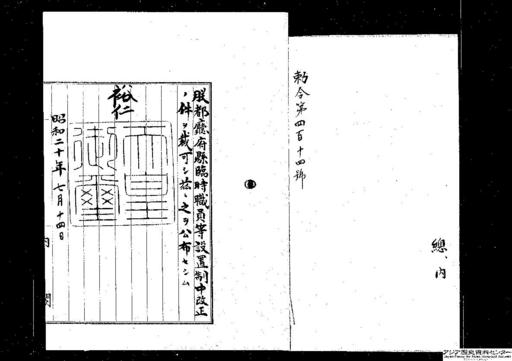 勅令第四百十四號
總、内
朕都廳府縣臨時職員等設置制中改正
ノ件ヲ裁可シ茲ニ之ヲ公布セシム
裕仁
天皇御璽
昭和二十年七月十四日
内閣
アジア歴史資料センター
Japan Center for Asian Historical Records